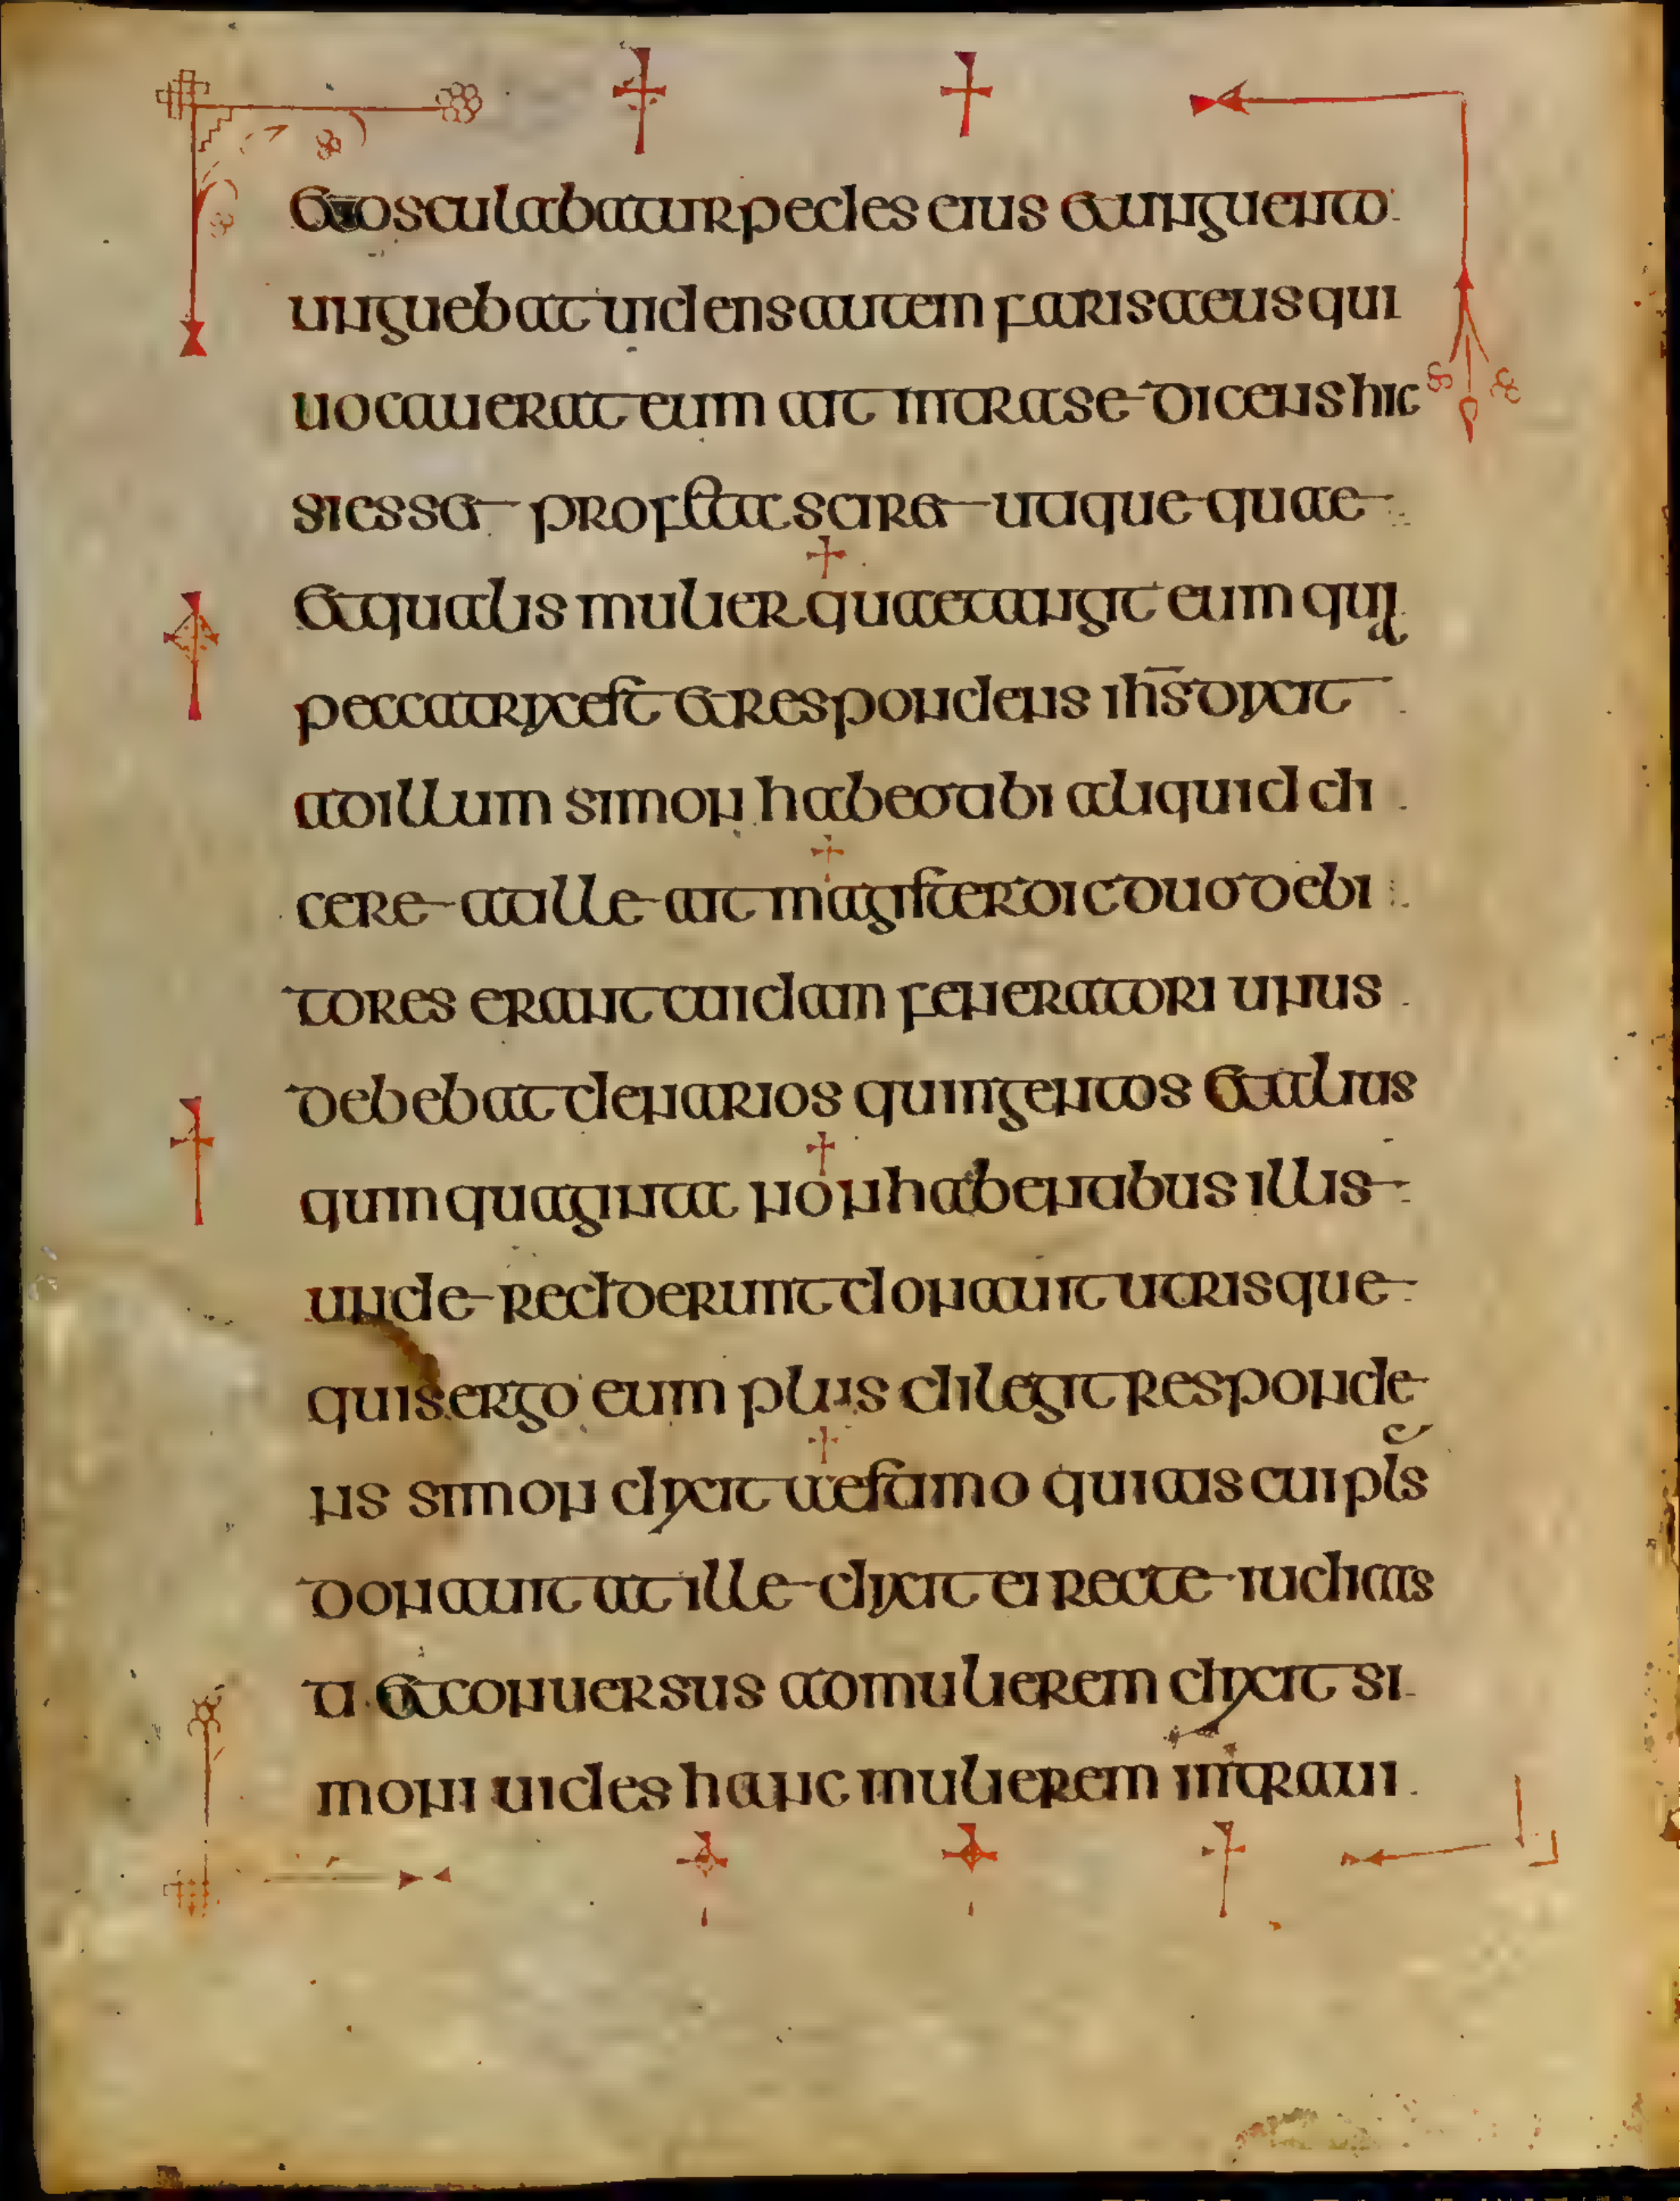 et osculabatur pedes eius et unguento
unguebat uidens autem farisaeus qui
uocauerat eum ait intra se dicens hic
si esset profeta sciret utique quae
et qualis mulier quae tangit eum qui
peccatrix est et respondens ihs̄ dixit
ad illum simon habeo tibi aliquid di
cere at ille ait magister dic duo debi
tores erant cuidam feneratori unus
debebat denarios quingentos et alius
quinquaginta non habentibus illis
unde redderunt donauit utrisque
quis ergo eum plus dilegit responde
ns simon dixit aestimo quia is cui pls
donauit at ille dixit ei recte iudicas
ti et conuersus ad mulierem dixit si
moni uides hanc mulierem intraui